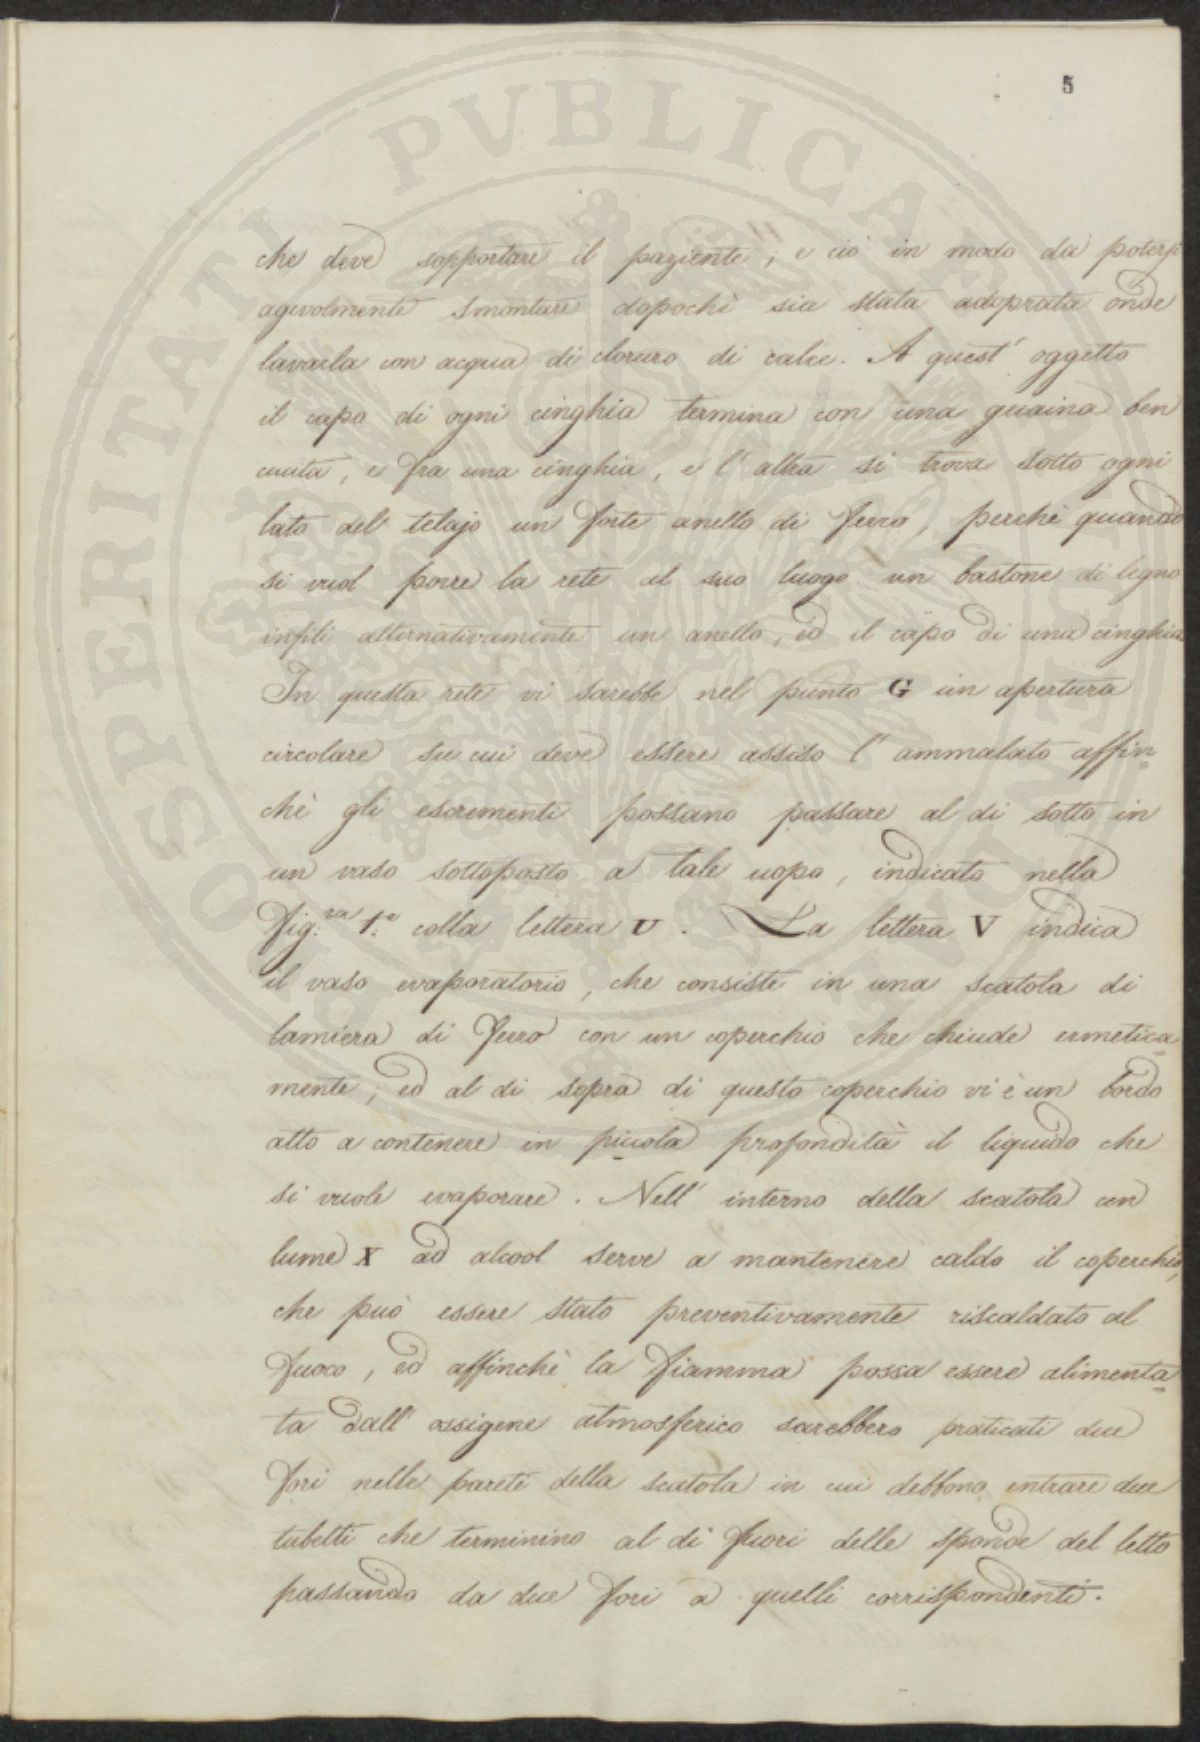 5
che deve sopportare il paziente; e ciò in modo da potersi
agevolmente smontare dopochè sia stata adoprata onde
lavarla con acqua di cloruro di calce. A quest' oggetto
il capo di ogni cinghia termina con una guaina ben
cucita, e fra una cinghia, e l' altra si trova sotto ogni
lato del telajo un forte anello di ferro, perchè quando
si vuol porre la rete al suo luogo un bastone di legno
infili alternativamente un anello, ed il capo di una cinghia
In questa rete vi sarebbe nel punto G un apertura
circolare su cui deve essere assiso l' ammalato affin-
chè gli escrementi possano passare al di sotto in
un vaso sottoposto a tale uopo, indicato nella
fig.ra 1.a colla lettera U. La lettera V indica
il vaso evaporatorio, che consiste in una scatola di
lamiera di ferro con un coperchio che chiude ermetica-
mente; ed al di sopra di questo coperchio vi è un bordo
atto a contenere in piccola profondità il liquido che
si vuole evaporare. Nell' interno della scatola un
lume X ad alcool serve a mantenere caldo il coperchio,
che può essere stato preventivamente riscaldato al
fuoco, ed affinchè la fiamma possa essere alimenta-
ta dall' ossigene atmosferico sarebbero praticati due
fori nelle pareti della scatola in cui debbono entrare due
tubetti che terminino al di fuori delle sponde del letto
passando da due fori a quelli corrispondenti.